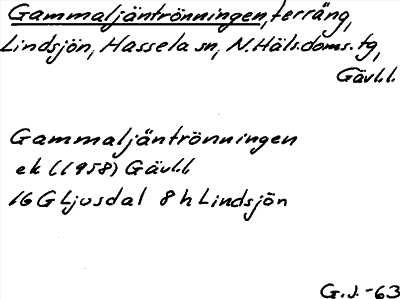 Gammaljäntrönningen, terräng,
Lindsjön, Hassela sn, N.Häls.doms.tg,
Gävl.l.
Gammaljäntrönningen
ek (1958) Gävl.l
16G Ljusdal 8h Lindsjön
G.J.-63